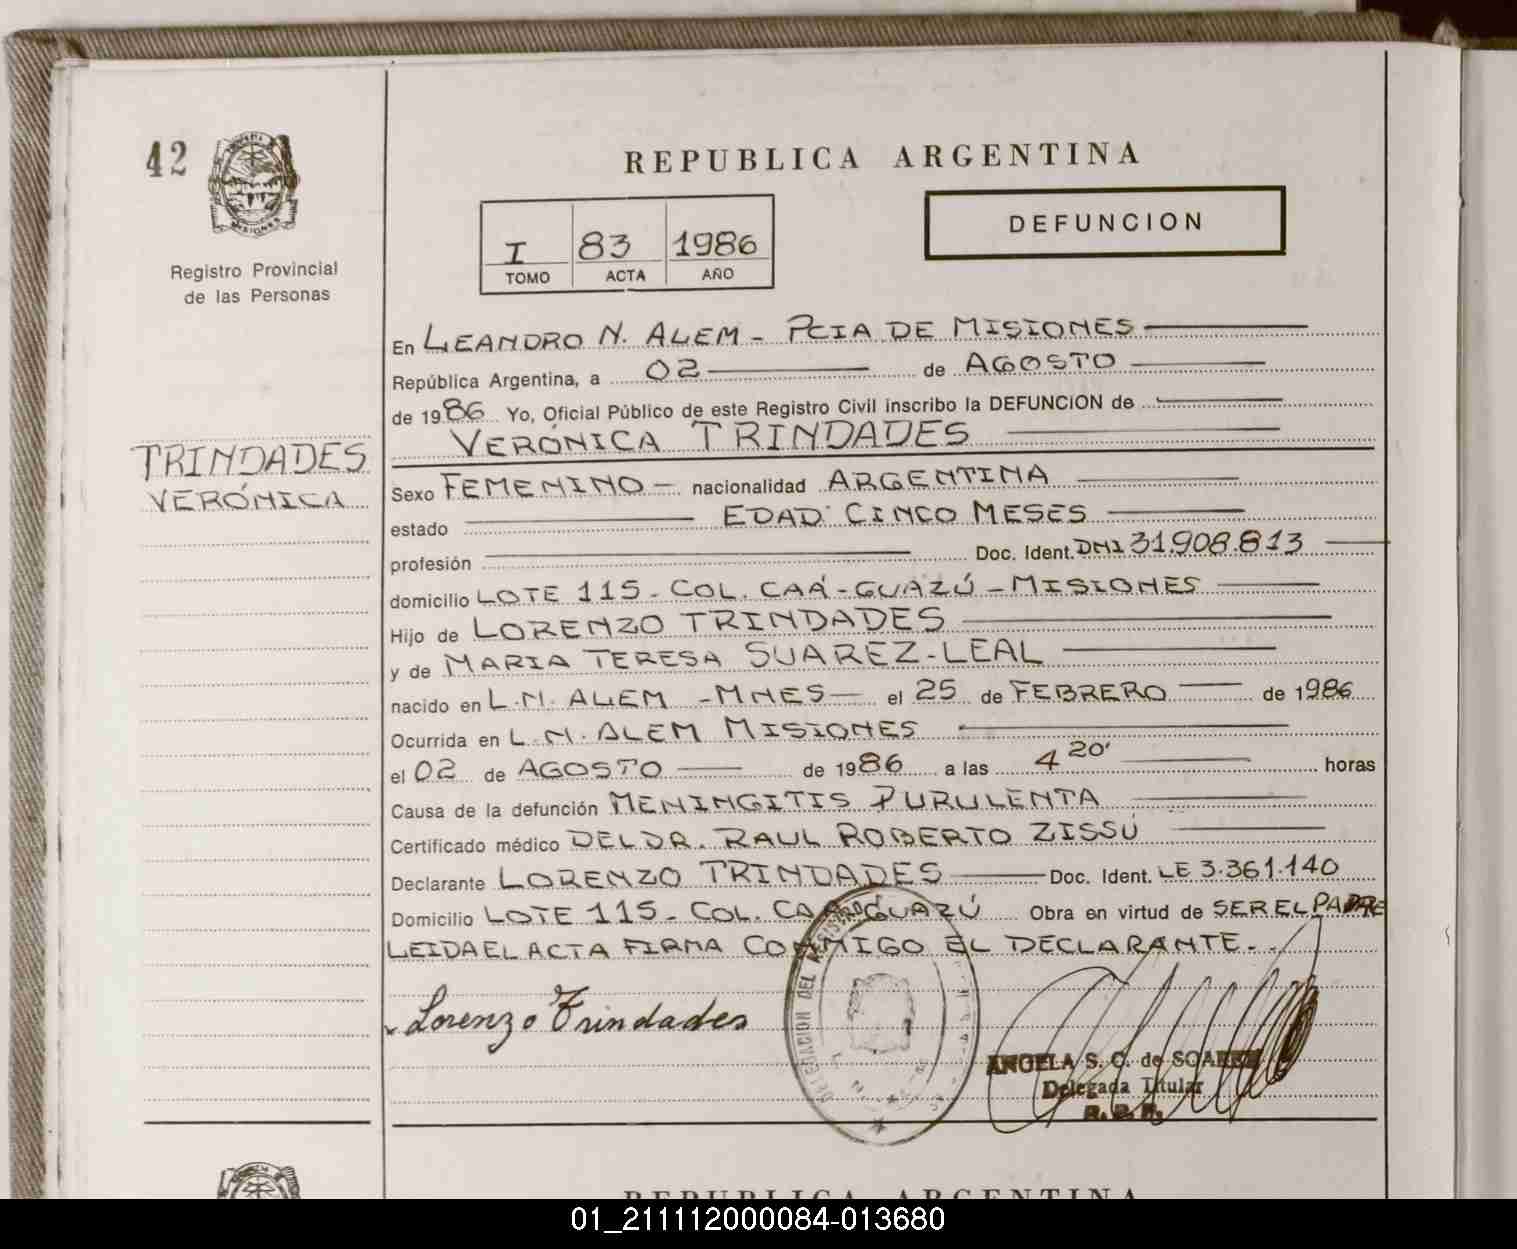 42
REPUBLICA ARGENTINA
DEFUNCION
I 83 1986
TOMO ACTA AÑO
Registro Provincial
de las Personas
TRINDADES
VERÓNICA
En LEANDRO N. ALEM - PCIA DE MISIONES
República Argentina, a 02 de AGOSTO
de 1986 Yo, Oficial Público de este Registro Civil inscribo la DEFUNCION de
VERÓNICA TRINDADES
Sexo FEMENINO - nacionalidad ARGENTINA
estado EDAD: CINCO MESES
profesión Doc. Ident. DNI 31.908.813
domicilio LOTE 115 - COL. CAÁ-GUAZÚ - MISIONES
Hijo de LORENZO TRINDADES
y de MARIA TERESA SUAREZ-LEAL
nacido en L.N. ALEM - MNES - el 25 de FEBRERO de 1986
Ocurrida en L.N. ALEM MISIONES
el 02 de AGOSTO de 1986 a las 4 20' horas
Causa de la defunción MENINGITIS PURULENTA
Certificado médico DEL DR. RAUL ROBERTO ZISSU
Declarante LORENZO TRINDADES Doc. Ident. LE 3.361.140
Domicilio LOTE 115 - COL. CAÁ-GUAZÚ Obra en virtud de SER EL PADRE
LEIDA EL ACTA FIRMA CONMIGO EL DECLARANTE.
Lorenzo Trindades
DELEGACION DEL REGISTRO
ANGELA S. C. de SOAREZ
Delegada Titular
REPUBLICA ARGENTINA
01_211112000084-013680